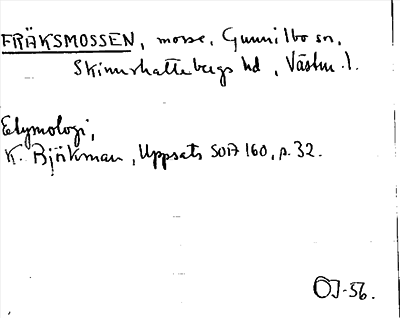 FRÄKSMOSSEN, mosse, Gunnilbo sn,
Skinnskattebergs hd, Västm. l.
Etymologi,
K. Björkman, Uppsats SOA 160, s. 32.
OJ-56.